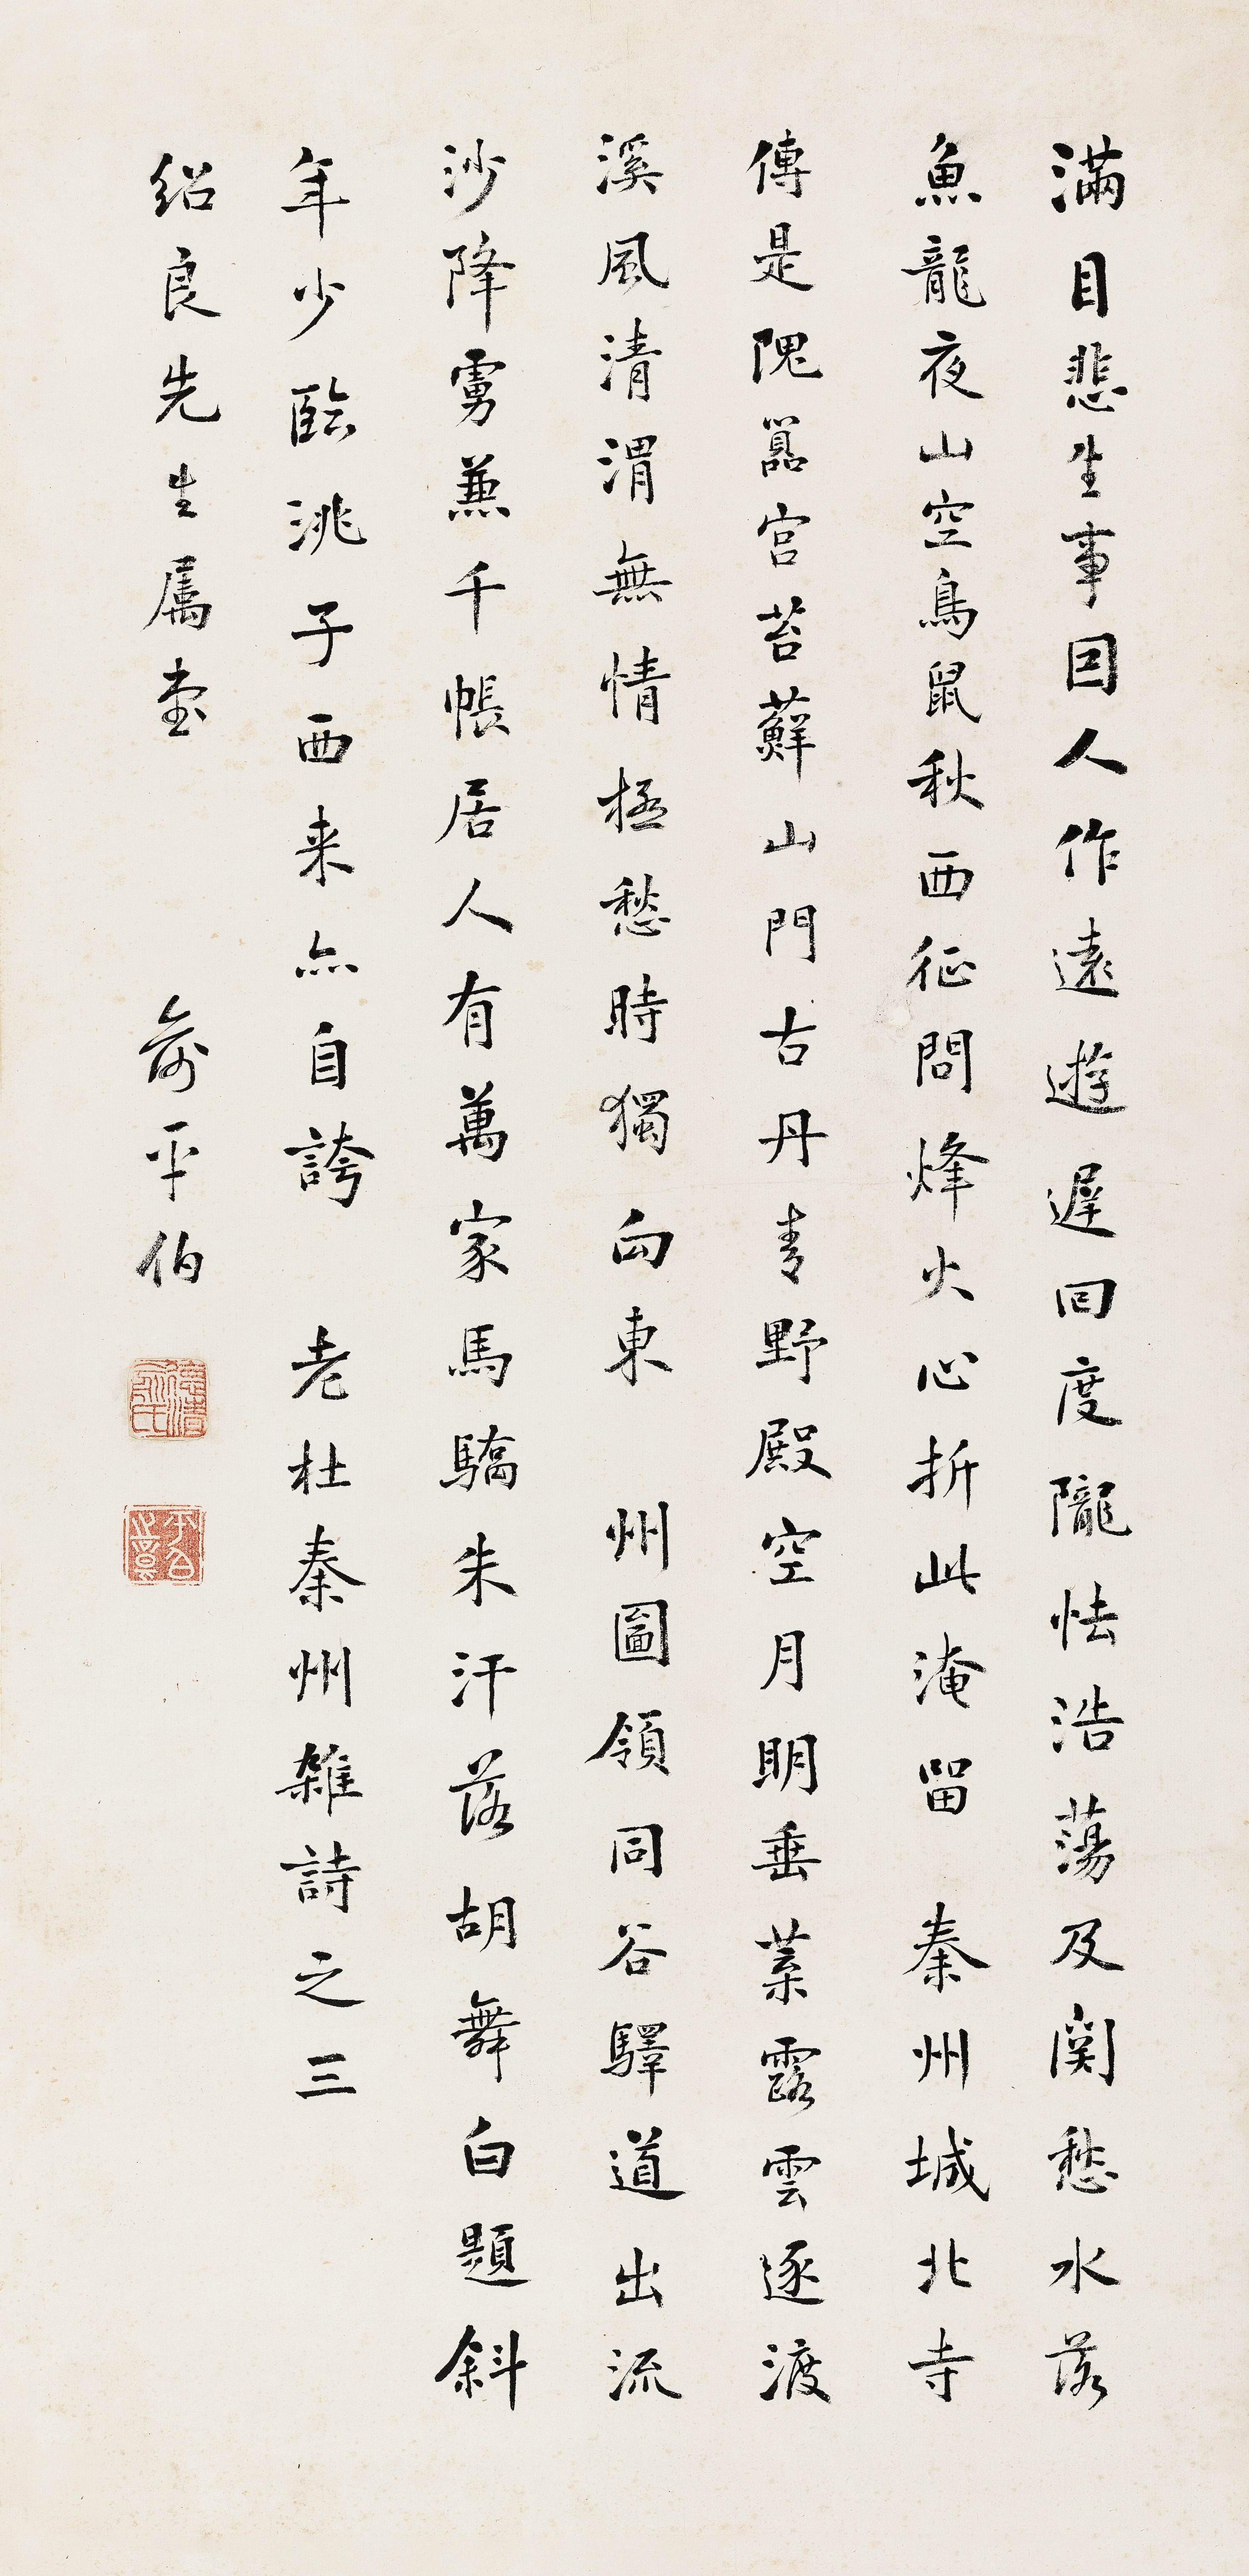 滿目悲生事因人作遠遊遲回度隴怯浩蕩及關愁水落
魚龍夜山空鳥鼠秋西征問烽火心折此淹留 秦州城北寺
傳是隗囂宮苔蘚山門古丹青野殿空月明垂葉露雲逐渡
溪風清渭無情極愁時獨向東 州圖領同谷驛道出流
沙降虜兼千帳居人有萬家馬驕朱汗落胡舞白題斜
年少臨洮子西来亦自誇 老杜秦州雜詩之三
紹良先生属書
俞平伯
德清俞氏
平伯之章